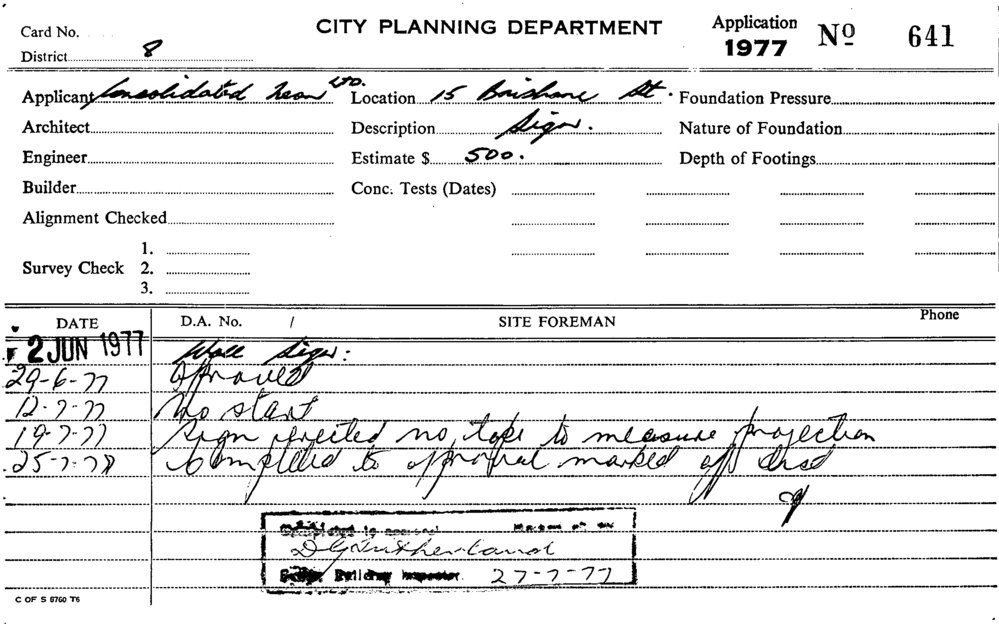 CITY PLANNING DEPARTMENT
Application 1977 Nº 641
Card No.
District 8
Applicant Consolidated Neon LTD. Location 15 Brisbane St. Foundation Pressure
Architect Description Sign. Nature of Foundation
Engineer Estimate $ 500. Depth of Footings
Builder Conc. Tests (Dates)
Alignment Checked
1.
Survey Check 2.
3.
DATE D.A. No. / SITE FOREMAN Phone
2 JUN 1977 Wall Sign:
29-6-77 Approved
12-7-77 No start
19-7-77 Sign erected no tape to measure projection
25-7-77 Completed to approval marked off
Completed to approval
D G Sutherland
Building Inspector. 27-7-77
C OF S 8760 T6